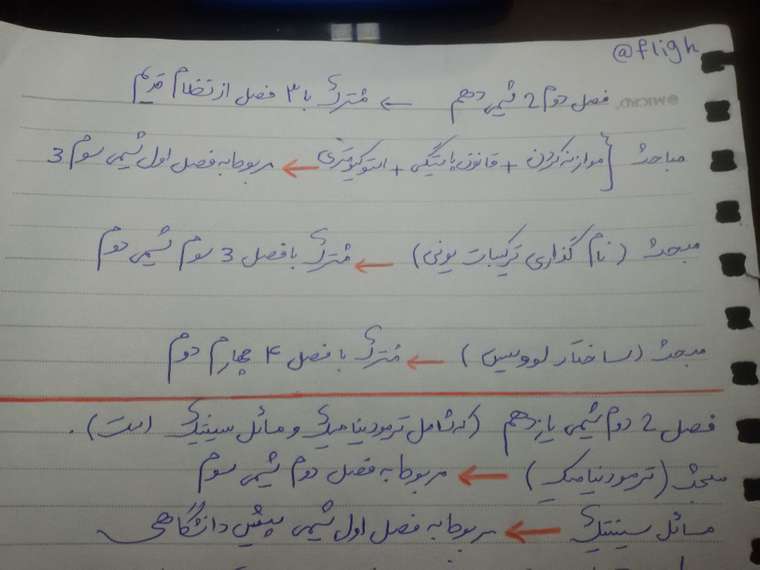 @fligh
فصل دوم 2 شیمی دهم ← مشترک با ۳ فصل از نظام قدیم
مباحث {موازنه کردن + قانون پایستگی + استوکیومتری ← مربوط به فصل اول شیمی سوم 3
مبحث (نام گذاری ترکیبات یونی) ← مشترک با فصل 3 سوم شیمی دوم
مبحث (ساختار لوویس) ← مشترک با فصل ۴ چهارم دوم
فصل 2 دوم شیمی یازدهم (که شامل ترمودینامیک و مسائل سینتیک است).
مبحث (ترمودینامیک) ← مربوط به فصل دوم شیمی سوم
مسائل سینتیک ← مربوط به فصل اول شیمی پیش دانشگاهی